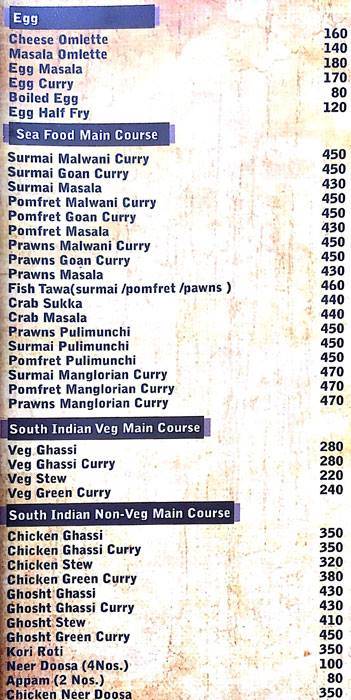 Egg
Cheese Omlette 160
Masala Omlette 140
Egg Masala 180
Egg Curry 170
Boiled Egg 80
Egg Half Fry 120
Sea Food Main Course
Surmai Malwani Curry 450
Surmai Goan Curry 450
Surmai Masala 430
Pomfret Malwani Curry 450
Pomfret Goan Curry 450
Pomfret Masala 430
Prawns Malwani Curry 450
Prawns Goan Curry 450
Prawns Masala 430
Fish Tawa(surmai /pomfret /pawns ) 460
Crab Sukka 440
Crab Masala 440
Prawns Pulimunchi 450
Surmai Pulimunchi 450
Pomfret Pulimunchi 450
Surmai Manglorian Curry 470
Pomfret Manglorian Curry 470
Prawns Manglorian Curry 470
South Indian Veg Main Course
Veg Ghassi 280
Veg Ghassi Curry 280
Veg Stew 220
Veg Green Curry 240
South Indian Non-Veg Main Course
Chicken Ghassi 350
Chicken Ghassi Curry 350
Chicken Stew 320
Chicken Green Curry 380
Ghosht Ghassi 430
Ghosht Ghassi Curry 430
Ghosht Stew 410
Ghosht Green Curry 450
Kori Roti 350
Neer Doosa (4Nos.) 100
Appam (2 Nos.) 80
Chicken Neer Doosa 350